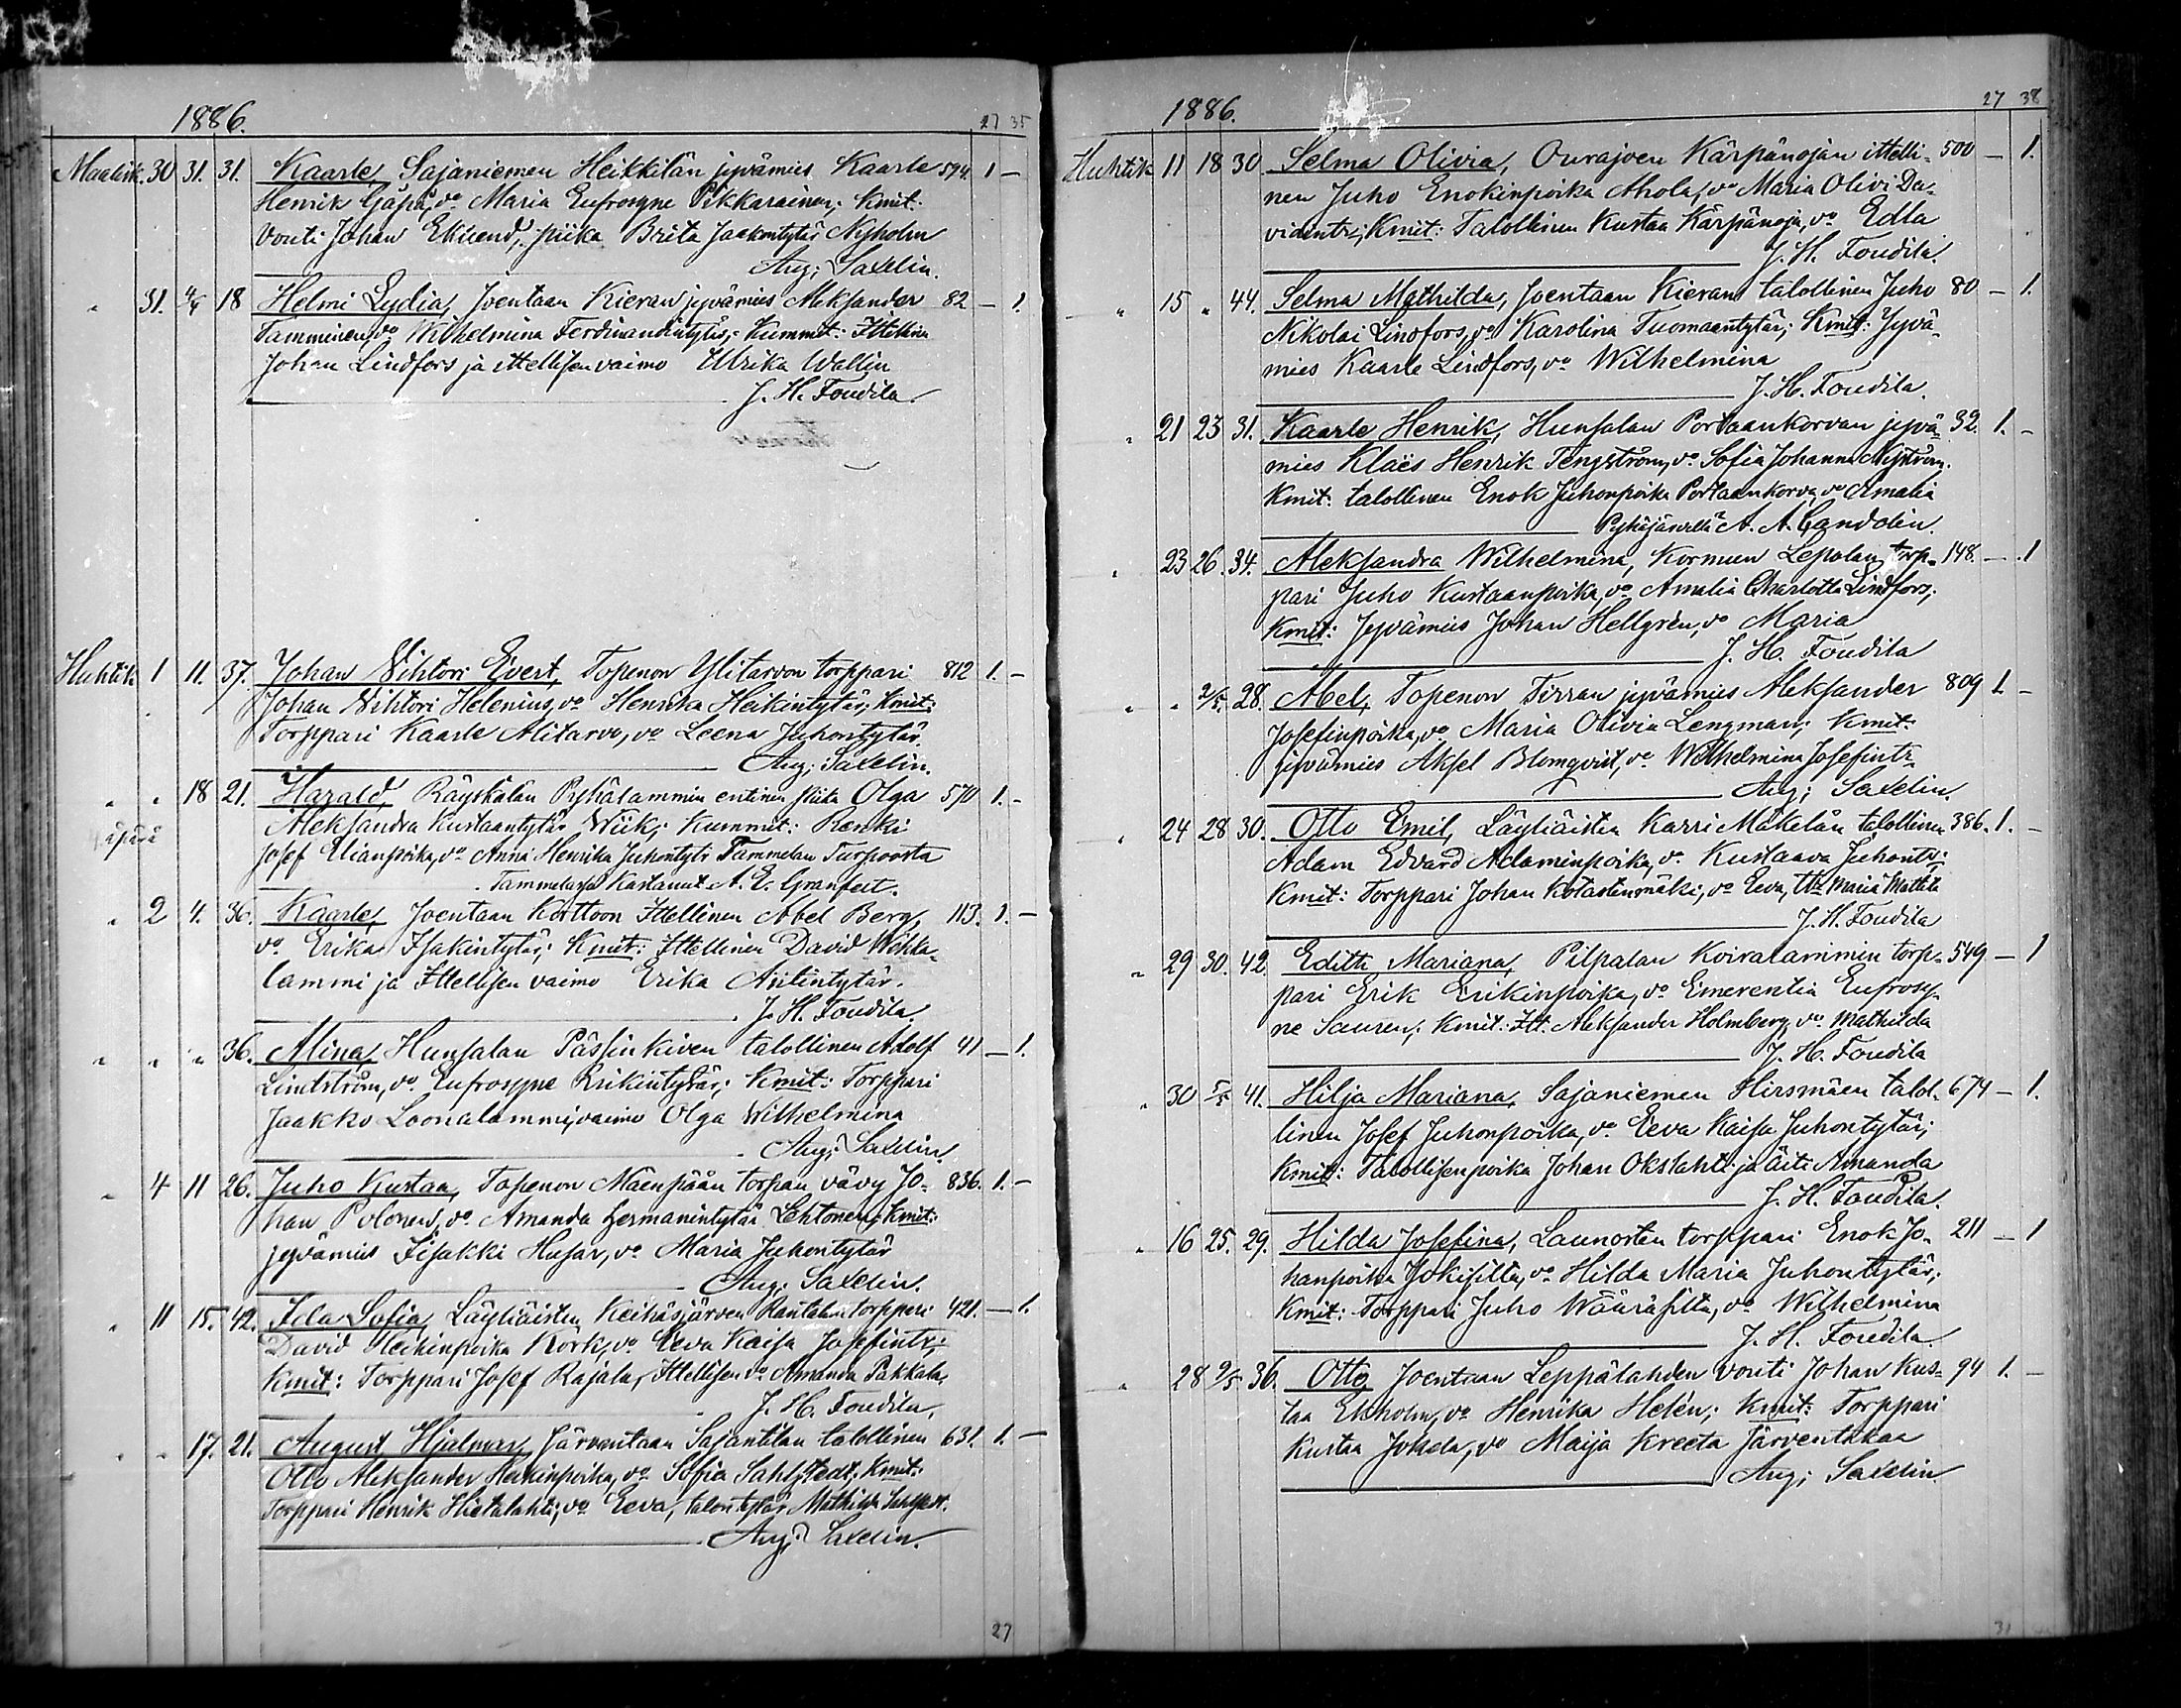 1886. 27 35
Maalisk. 30 31. 31. Kaarle, Sajaniemen Heikkilän jyvämies Kaarle 594. 1 —
Henrik Gåpå, vo Maria Eufrosyne Pikkarainen; Kmit.
Vouti Johan Eklund, piika Brita Jaakontytär Nyholm
Aug; Saxelin.
" 31. 4/4 18 Helmi Lydia, Joentaan Kieran jyvämies Aleksander 82 — 1.
Tamminen, vo Wilhelmina Ferdinandintytär; Kummit: Ittellinen
Johan Lindfors ja ittellisen vaimo Ulrika Wallin
J. H. Foudila.
Huhtik 1 11. 37. Johan Wihtori Evert, Topenon Ylitarvon torppari 812 1. —
Johan Wihtori Helenius, vo Henrika Heikintytär, Kmit:
Torppari Kaarle Alitarvo, vo Leena Juhontytär.
Aug; Saxelin.
" " 18 21. Harald, Räyskälän Pyhälammin entinen piika Olga 570 1. -
äpärä Aleksandra Kustaantytär Wiik; Kummit: Renki
Josef Elianpoika, vo Anna Henrika Juhontytr Tammelan Turpoosta
Tammelassa Kastanut A. E. Granfelt.
" 2 4. 36. Kaarle, Joentaan Korttoon Ittellinen Abel Berg, 113. 1. —
vo Erika Isakintytär; Kmit: Ittellinen David Wähä-
lammi ja Ittellisen vaimo Erika Antintytär.
J. H. Foudila.
" " " 36. Alina, Hunsalan Pässinkiven talollinen Adolf 41 — 1.
Lindström, vo Eufrosyne Erikintytär; Kmit: Torppari
Jaakko Loonalammi, vaimo Olga Wilhelmina
Aug; Saxelin.
" 4 11 26. Juho Kustaa, Topenon Mäenpään torpan vävy Jo- 836. 1. —
han Polonen, vo Amanda Hermanintytär Lehtonen; Kmit:
jyvämies Iisakki Husar, vo Maria Juhontytär
Aug; Saxelin.
" 11 15. 42. Ida Sofia, Läyliäisten Keihäsjärven Rantalan torppari 421. — 1.
David Heikinpoika Kork, vo Eeva Kaisa Josefintr;
Kmit: Torppari Josef Rajala, Ittellisen vo Amanda Pakkala.
J. H. Foudila.
" " 17. 21. August Hjalmar, Järventaan Sajantilan talollinen 631. 1. —
Otto Aleksander Heikinpoika, vo Sofia Sahlstedt, Kmit:
Torppari Henrik Hietalahti, vo Eeva, talon tytär Mathilda Sahlstedt.
Aug; Saxelin.
27
1886. 27 38
Huhtik 11 18 30 Selma Olivia, Ourajoen Kärpänojan ittelli- 500 — 1.
nen Juho Enokinpoika Ahola, vo Maria Olivi Da-
vidintr; Kmit: Talollinen Kustaa Kärpänoja, vo Edla
J. H. Foudila.
" 15 " 44. Selma Mathilda, Joentaan Kieran talollinen Juho 80 — 1.
Nikolai Lindfors, vo Karolina Tuomaantytär; Kmit: Jyvä-
mies Kaarle Lindfors, vo Wilhelmina
J. H. Foudila.
" 21 23 31. Kaarle Henrik, Hunsalan Portaankorvan jyvä- 32. 1. -
mies Klaës Henrik Tengström, vo Sofia Johanna Nyström.
Kmit: talollinen Enok Juhonpoika Portaankorva, vo Amalia
Pyhäjärvellä A. A. Candolin.
" 23 26. 34. Aleksandra Wilhelmina, Kormuen Lepolan torp- 148. — 1
pari Juho Kustaanpoika, vo Amalia Charlotta Lindfors;
Kmit: Jyvämies Johan Hellgrén, vo Maria
J. H. Foudila
" " 2/5. 28. Abel, Topenon Tirran jyvämies Aleksander 809 1. —
Josefinpoika, vo Maria Olivia Lengman; Kmit:
jyvämies Aksel Blomqvist, vo Wilhelmina Josefintr.
Aug; Saxelin.
" 24 28 30. Otto Emil, Läyliäisten Karri Mäkelän talollinen 386. 1. —
Adam Edvard Adaminpoika, vo Kustaava Juhontr;
Kmit: Torppari Johan Kotastenmäki, vo Eeva, Maria Mattila
J. H. Foudila
" 29 30. 42. Edith Mariana, Pilpalan Koiralammin torp- 549 — 1
pari Erik Erikinpoika, vo Emerentia Eufrosy-
ne Sauren; Kmit: Itt. Aleksander Holmberg, vo Mathilda
J. H. Foudila
" 30 5/5 41. Hilja Mariana, Sajaniemen Hirsmäen talol- 674 — 1.
linen Josef Juhonpoika, vo Eeva Kaisa Juhontytär;
Kmit: Talollisenpoika Johan Okslahti ja äiti Amanda
J. H. Foudila.
" 16 25. 29. Hilda Josefina, Launosten torppari Enok Jo- 211 — 1
hanpoika Jokisilta, vo Hilda Maria Juhontytär;
Kmit: Torppari Juho Wääräsilta, vo Wilhelmina
J. H. Foudila.
" 28 9/5 36. Otto, Joentaan Leppälahden vouti Johan Kus- 94 1. —
taa Ekholm, vo Henrika Helén; Kmit: Torppari
Kustaa Jokela, vo Maija Kreeta Järventakaa
Aug; Saxelin.
31